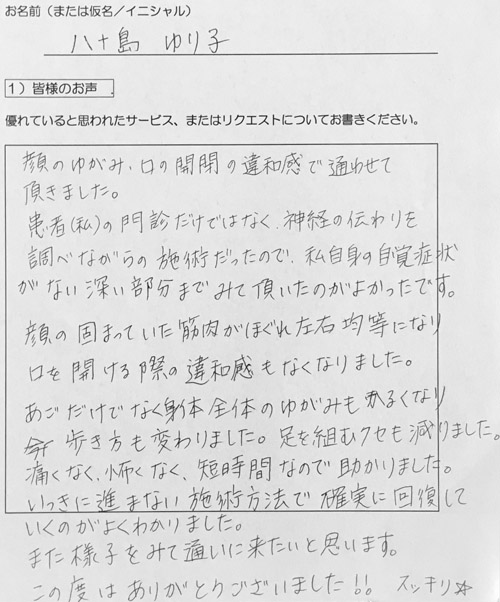 お名前（または仮名／イニシャル）
八十島 ゆり子
1）皆様のお声
優れていると思われたサービス、またはリクエストについてお書きください。
顔のゆがみ、口の開閉の違和感で通わせて
頂きました。
患者(私)の門診だけではなく、神経の伝わりを
調べながらの施術だったので、私自身の自覚症状
がない深い部分までみて頂いたのがよかったです。
顔の固まっていた筋肉がほぐれ左右均等になり
口を開ける際の違和感もなくなりました。
あごだけでなく身体全体のゆがみもかるくなり
歩き方も変わりました。足を組むクセも減りました。
痛くなく、怖くなく、短時間なので助かりました。
いっきに進まない施術方法で確実に回復して
いくのがよくわかりました。
また様子をみて通いに来たいと思います。
この度はありがとうございました!! スッキリ☆